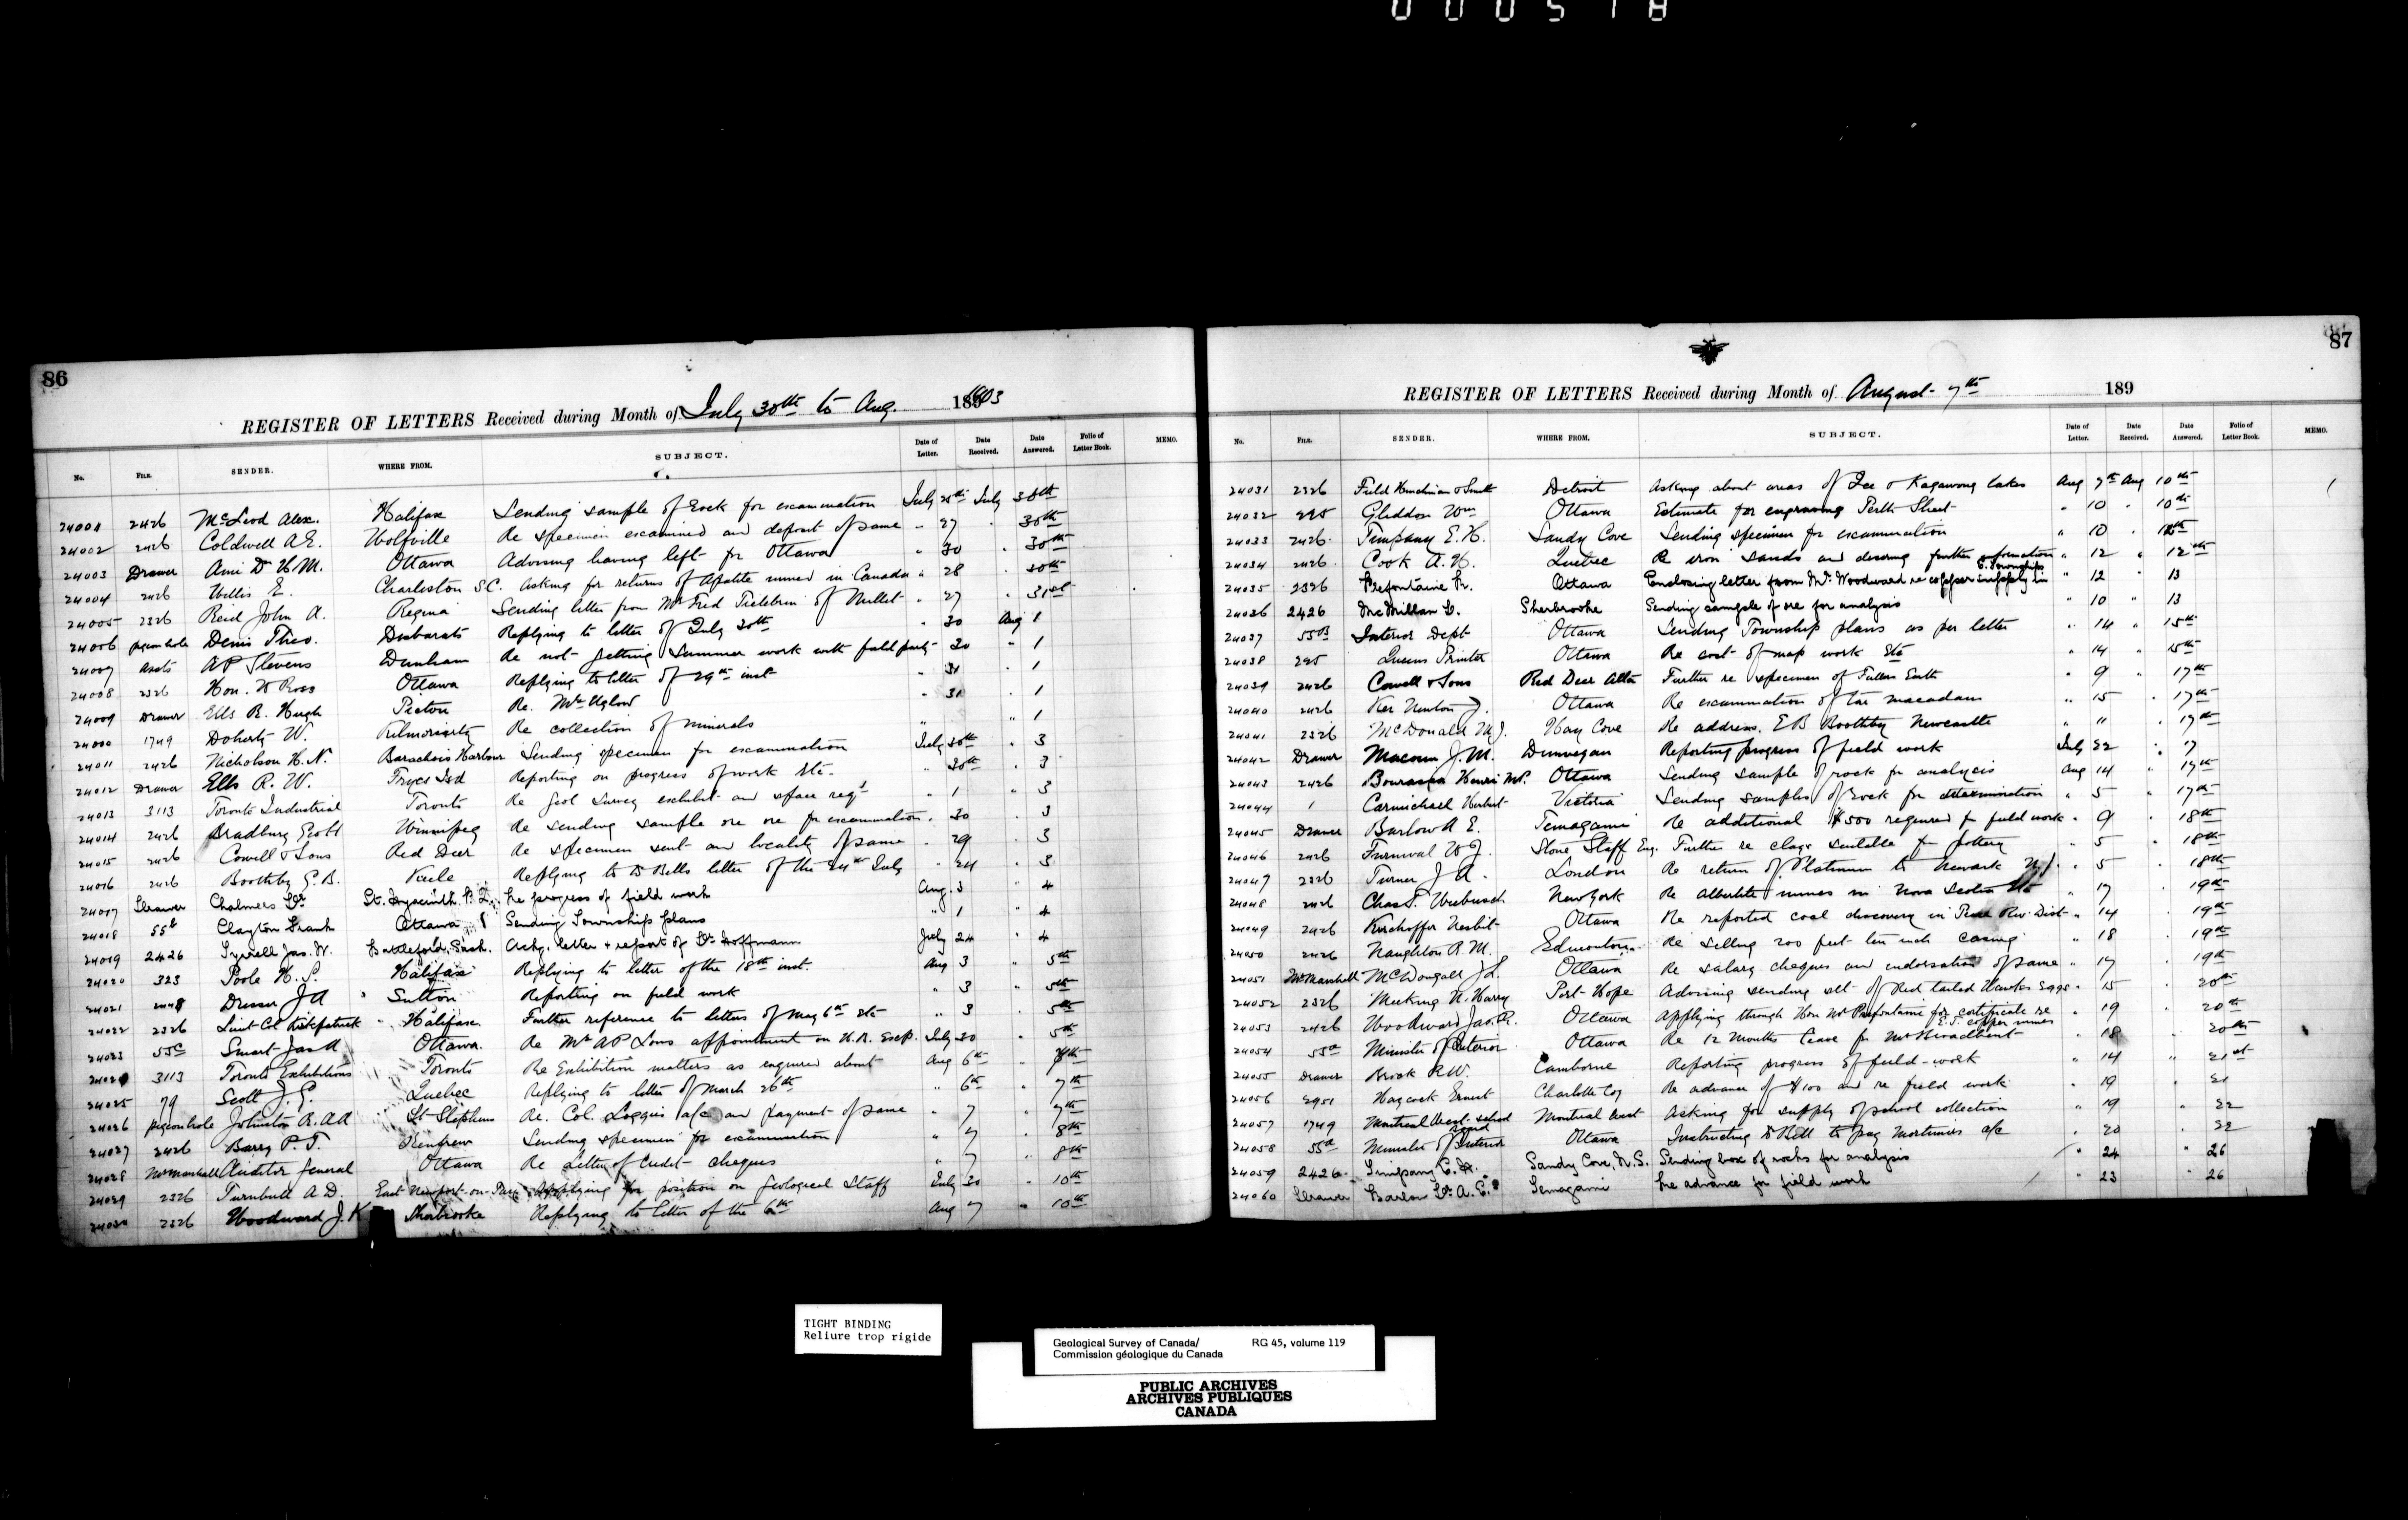 000518
86
REGISTER OF LETTERS Received during Month of July 30th to Aug. 1903
No. FILE. SENDER. WHERE FROM. SUBJECT. Date of Letter. Date Received. Date Answered. Folio of Letter Book. MEMO.
24001 2426 McLeod Alex. Halifax Sending sample of rock for examination July 28th July 30th
24002 2426 Coldwell A.E. Wolfville Re specimen examined and deposit of same " 27 " 30th
24003 Drawer Ami Dr H.M. Ottawa Advising having left for Ottawa " 30 " 30th
24004 2426 Willis E. Charleston S.C. Asking for returns of Apatite mined in Canada " 28 " 30th
24005 2326 Reid John A. Regina Sending letter from Mr Fred of Millet " 27 " 31st
24006 pigeonhole Denis Theo. Desbarats Replying to letter of July 30th " 30 Aug 1
24007 Assts A P Stevens Dunham Re not getting summer work with field party 30 " 1
24008 2326 Hon. W Ross Ottawa Replying to letter of 29th inst " 31 " 1
24009 Drawer Ells R. Hugh Picton Re. Mr Uglow " 31 " 1
24010 1749 Doherty W. Kilmoriarty Re collection of minerals " " 1
24011 2426 Nicholson H.N. Barachois Harbour Sending specimen for examination July 30th " 3
24012 Drawer Ells R. W. Fryes Isd Reporting on progress of work etc. " 30th " 3
24013 3113 Toronto Industrial Toronto Re Geol Survey exhibit and space reqd " 1 " 3
24014 2426 Bradburg Scott Winnipeg Re sending sample ore ore for examination " 30 " 3
24015 2426 Cowell & Sons Red Deer Re specimen sent and locality of same " 29 " 3
24016 2426 Boothby E.B. Vaile Replying to Dr Bells letter of the 24th July " 24 " 3
24017 Drawer Chalmers Dr St. Hyacinth P.Q. Re progress of field work Aug. 3 " 4
24018 55b Clayton Frank Ottawa Sending Township plans " 1 " 4
24019 2426 Tyrrell Jas. W. Battleford, Sask. Ackg. letter & report of Dr Hoffmann July 24 " 4
24020 323 Poole H.S. Halifax Replying to letter of the 18th inst. Aug 3 " 5th
24021 Dresser J A Sutton Reporting on field work " 3 " 5th
24022 2326 Lieut Col Kirkpatrick Halifax Further reference to letters of May 6th etc " 3 " 5th
24023 55c Smart Jas A Ottawa. Re Mr A P Lows appointment on H.B. Exp. July 30 " 5th
24024 3113 Toronto Exhibitions Toronto Re Exhibition matters as enquired about Aug 6th " 7th
24025 79 Scott J. G. Quebec Replying to letter of March 26th " 6th " 7th
24026 pigeonhole Johnston R.A.A St Stephens Re. Col. Loggies a/c and payment of same " 7 " 7th
24027 2426 Barry P. T. Renfrew Sending specimen for examination " 7 " 8th
24028 Mr Marshall Auditor General Ottawa Re Letter of Credit cheques " 7 " 8th
24029 2326 Turnbull A.D. East Newport-on- Applying for position on Geological Staff July 30 " 10th
24030 2326 Woodward J. K Sherbrooke Replying to letter of the 6th Aug 7 " 10th
87
REGISTER OF LETTERS Received during Month of August 7th 189
No. FILE. SENDER. WHERE FROM. SUBJECT. Date of Letter. Date Received. Date Answered. Folio of Letter Book. MEMO.
24031 2326 Field Hinchman & Smith Detroit Asking about areas of Ice & Kagawong lakes Aug 7th Aug 10th
24032 295 Gliddon Wm Ottawa Estimate for engraving Perth Sheet " 10 " 10th
24033 2426 Timpany E.H. Sandy Cove Sending specimen for examination " 10 " 12th
24034 2426 Cook A. H. Quebec Re iron sands and desiring further information " 12 " 12th
24035 2326 Prefontaine R. Ottawa Enclosing letter from Mr. Woodward re copper in E. Townships " 12 " 13
24036 2426 McMillan D. Sherbrooke Sending sample of ore for analysis " 10 " 13
24037 55B Interior Dept Ottawa Sending Township plans as per letter " 14 " 15th
24038 295 Queens Printer Ottawa Re cost of map work etc " 14 " 15th
24039 2426 Cowell & Sons Red Deer Alta Further re specimen of Fullers Earth " 9 " 17th
24040 2426 Ker Newton J. Ottawa Re examination of tar macadam " 15 " 17th
24041 2326 McDonald M J. Hay Cove Re address. E B Boothby Newcastle " 11 " 17th
24042 Drawer Macoun J. M. Dunvegan Reporting progress of field work July 22 " 17
24043 2426 Bourassa Henri MP. Ottawa Sending sample of rock for analysis Aug 14 " 17th
24044 Carmichael Herbert Victoria Sending samples of rock for determination " 5 " 17th
24045 Drawer Barlow A E. Temagami Re additional $500 required for field work " 9 " 18th
24046 2426 Furnival W J. Stone Staff Eng. Further re clays suitable for pottery " 5 " 18th
24047 2326 Turner J A. London Re return of Platinum to Newark N J. " 5 " 18th
24048 2426 Chas F. Wiebusch New York Re Albertite mines in Nova Scotia etc " 17 " 19th
24049 2426 Kirchoffer Nesbit Ottawa Re reported coal discovery in Peace Riv. Dist " 14 " 19th
24050 2426 Naughton R. M. Edmonton Re selling 200 feet ten inch casing " 18 " 19th
24051 Mr Marshall McDougall J L. Ottawa Re salary cheques and endorsation of same " 17 " 19th
24052 2326 Meeking N. Harry Port Hope Advising sending set of Red tailed Hawks Eggs " 15 " 20th
24053 2426 Woodward Jas. R. Ottawa Applying through Hon Mr Prefontaine for certificate re E.T. copper mines " 19 " 20th
24054 55a Minister of Interior Ottawa Re 12 months leave for Mr Broadbent " 18 " 20th
24055 Drawer Brock R.W. Camborne Reporting progress of field-work " 14 " 21st
24056 2951 Haycock Ernest Charlotte Coy Re advance of $100 and re field work " 19 " 21
24057 1749 Montreal West school Montreal West Asking for supply of school collection " 19 " 22
24058 55a Minister of Interior Ottawa Instructing Dr Bell to pay Mortimers a/c " 20 " 22
24059 2426 Timpany E. H. Sandy Cove, N.S. Sending box of rocks for analysis " 24 " 26
24060 Drawer Barlow Dr. A. E. Temagami Re advance for field work " 23 " 26
TIGHT BINDING
Reliure trop rigide
Geological Survey of Canada/ RG 45, volume 119
Commission géologique du Canada
PUBLIC ARCHIVES
ARCHIVES PUBLIQUES
CANADA